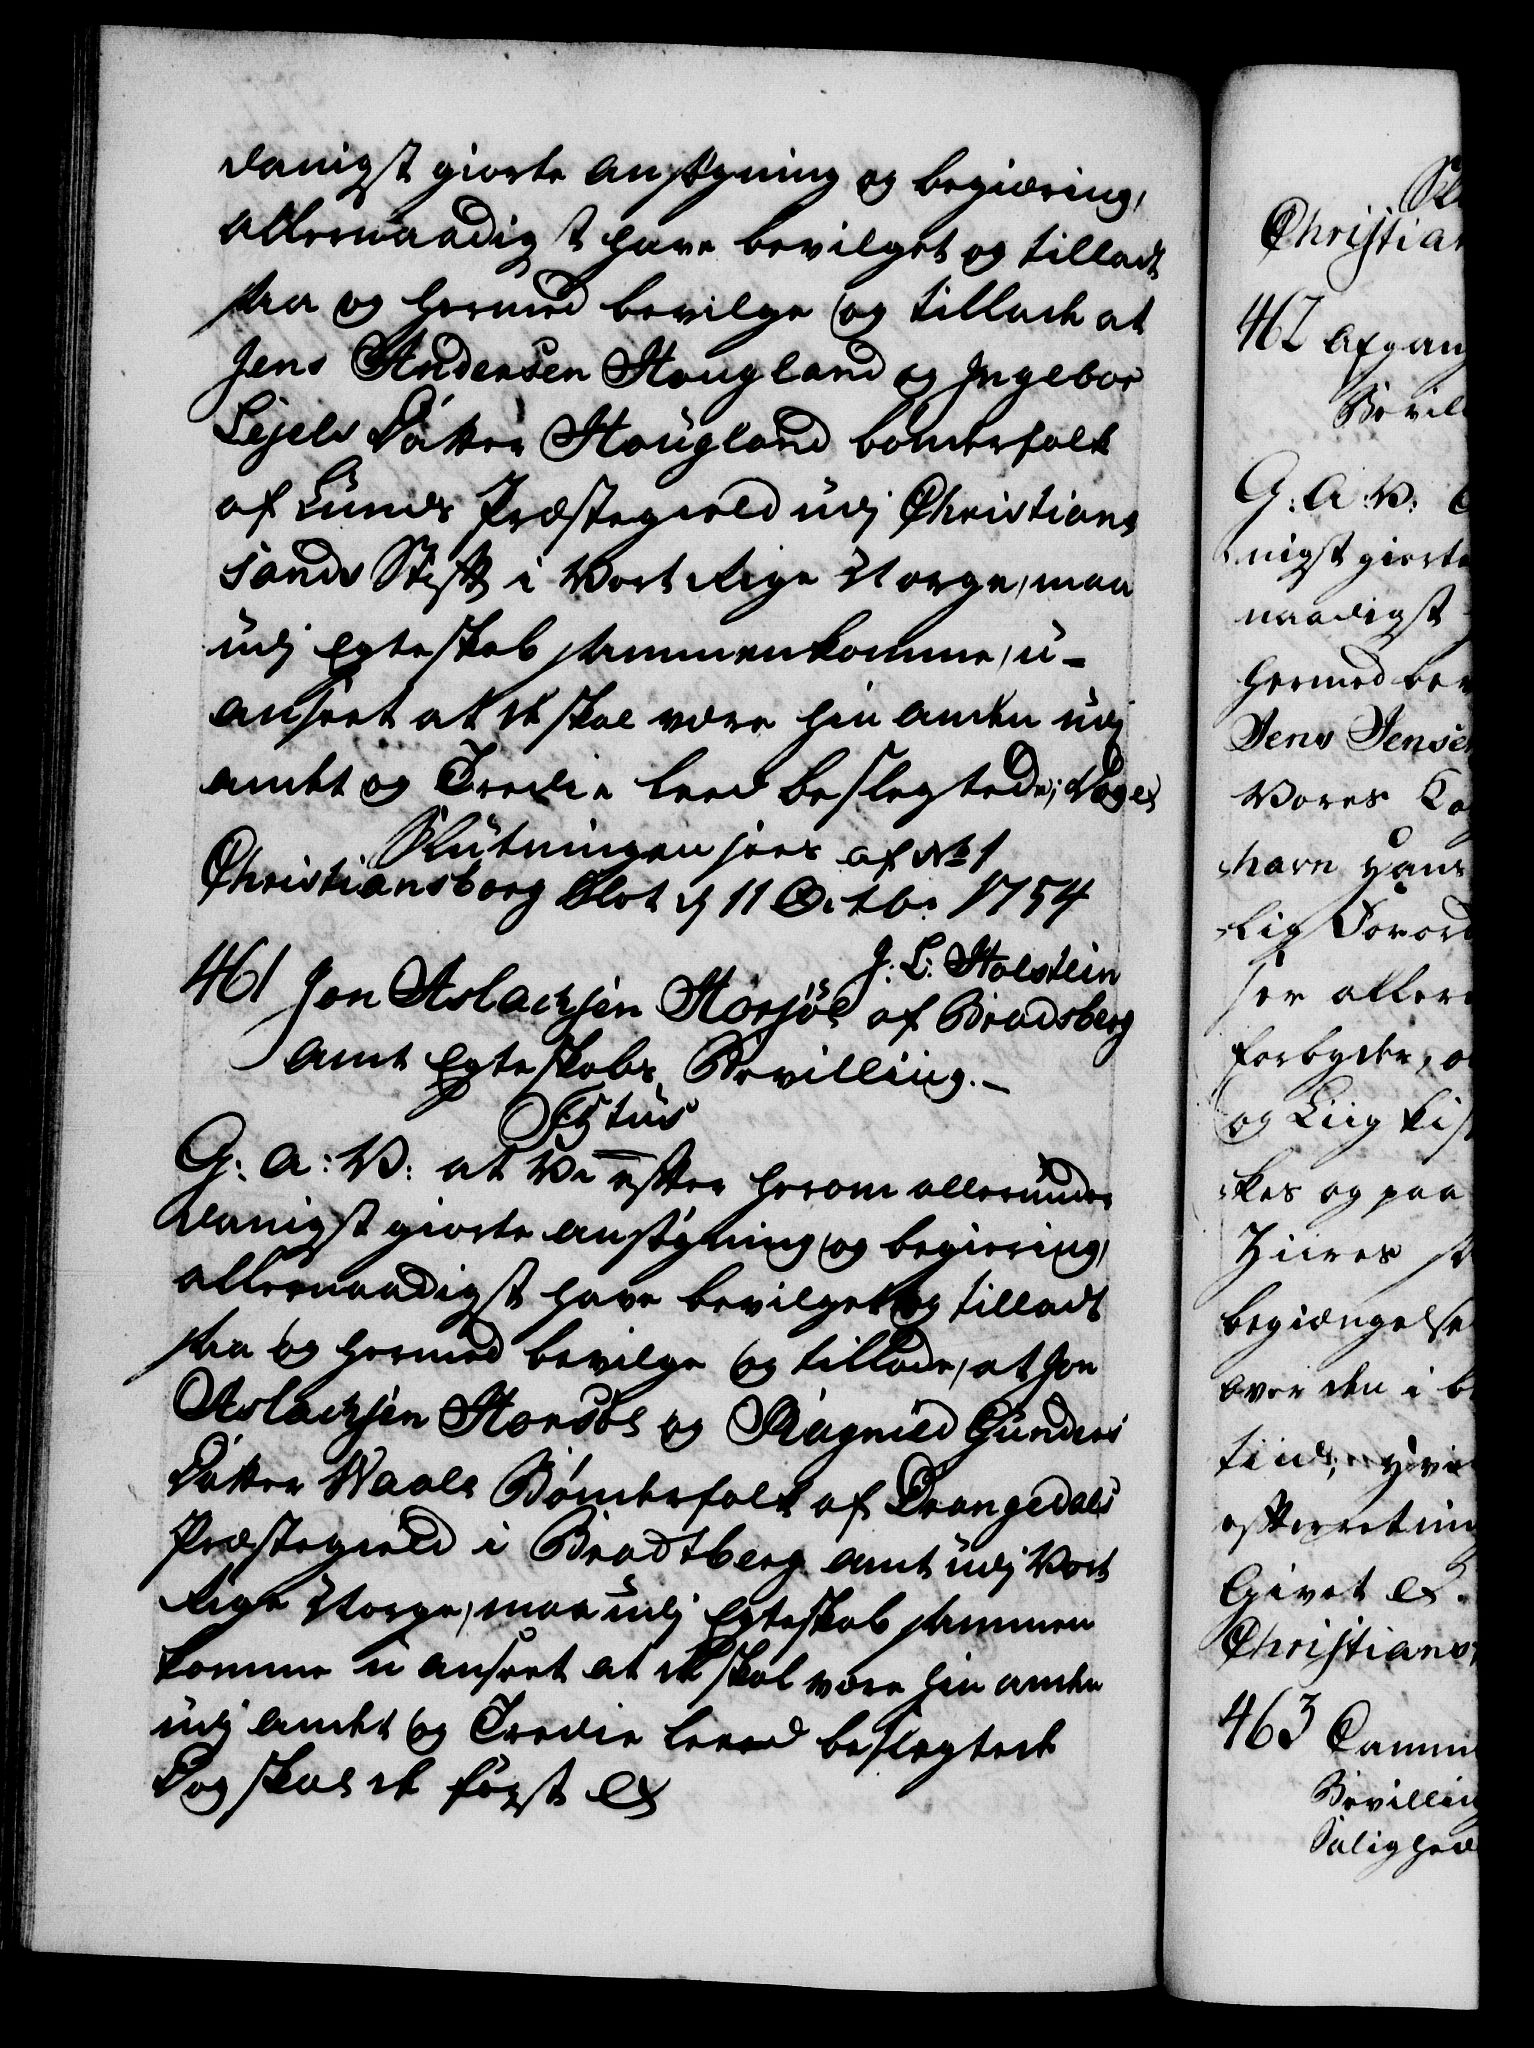 danigst giorte ansøgning og begiæring,
allernaadigst have bevilget og tilladt
saa og hermed bevilge og tillade at
Jens Andersen Hougland og Ingebor
Lejels Dåtter Hoügland bønderfolk
af Lunds Præstegield udj Christians
sands Stift i Vort Rige Norge, maa
udj Egteskab sammenkomme, u-
anseet at de skal være hin anden udj
andet og Tredie leed beslegtede; Dog ex
Slutningen sees af No 1
Christiansborg Slot d 11 Octbr 1754
J: L: Holstein
461 Jon Aslachsen Horsjøl af Bradsberg
amt Egteskabs Bevilling.-
Fystus
G: A: V: at Vi efter herom allerunder
danigst giorte ansøgning og begiering,
allernaadigst have bevilget og tilladt
saa og hermed bevilge og tillade, at Jon
Aslachsen Horsøl og Ragnild Gunders
Dåtter Waale Bønderfolk af Drangedals
Præstegield i Bradtberg amt udj Vort
Rige Norge, maa udj Egteskab sammen
komme u anseet at de skal være hin anden
udj andet og Tredie leed beslegtede
Dog skal de først ex
Christian
462 Afgang
Bevil
G: A: V:
nigst giorte
naadigst
hermed bev
Jens Jense
Vores
havn
lig Forord
ser aller
forbyder,
og Liig kis
kes og paa
begiængelse
over den i
efterretning
Givet ex.
Christians
463 Camm
Bevilling
Salighed